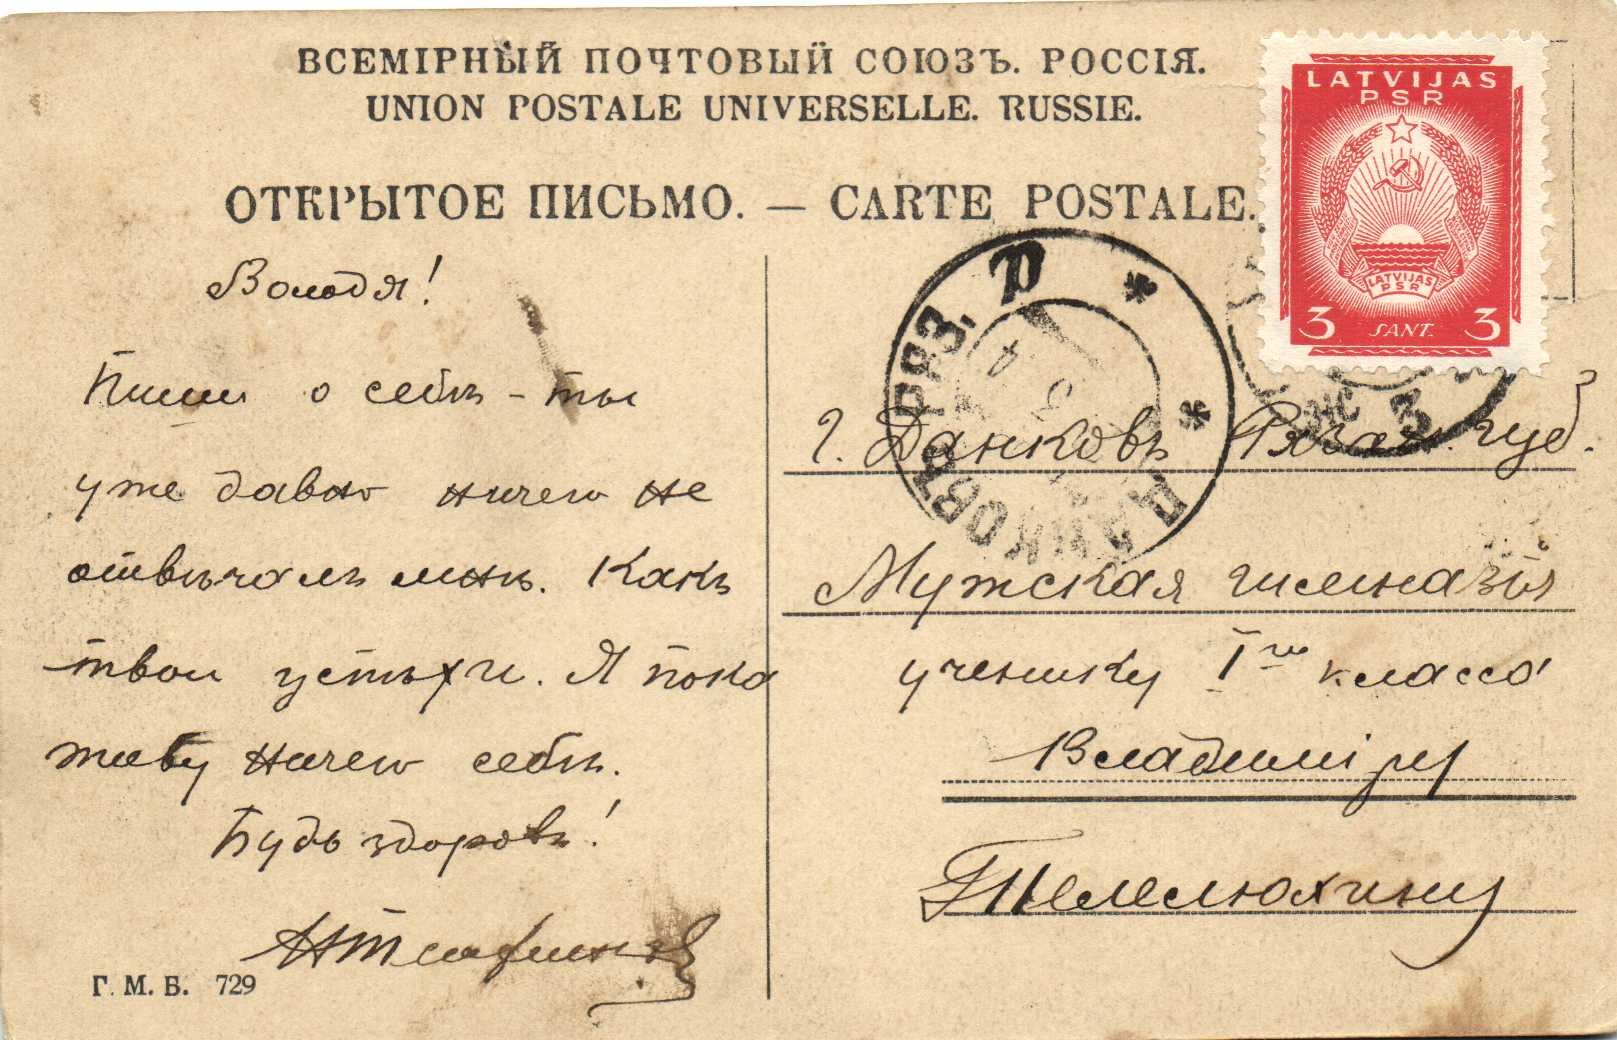 ВСЕМІРНЫЙ ПОЧТОВЫЙ СОЮЗЪ. РОССІЯ.
UNION POSTALE UNIVERSELLE. RUSSIE.
ОТКРЫТОЕ ПИСЬМО. — CARTE POSTALE.
LATVIJAS
PSR
LATVIJAS
PSR
3 SANT. 3
ДАНКОВЪ РЯЗ.
Володя!
Пиши о себѣ - ты
уже давно ничего не
отвѣчалъ мнѣ. Какъ
твои успѣхи. Я пока
живу ничего себѣ.
Будь здоровъ!
Г. М. Б. 729
г. Данковъ Рязан. губ.
Мужская гимназія
ученику I го класса
Владиміру
Шемелюхину